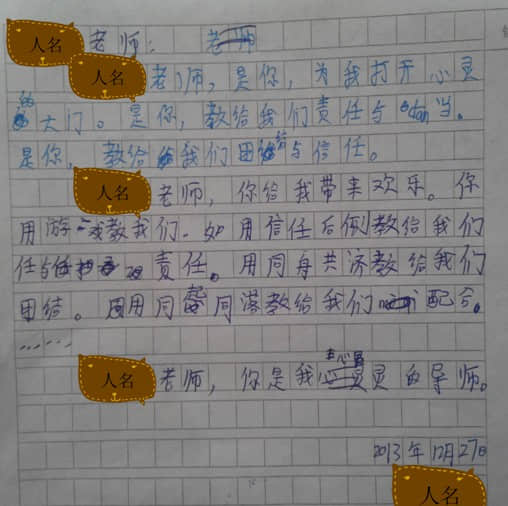 人名 老师:
人名 老师,是你,为我打开心灵
的大门。是你,教给我们责任与dan当。
是你,教给我们团结与信任。
人名 老师,你给我带来欢乐。你
用游戏教我们。如用信任后倒教给我们
任与责任。用同舟共济教给我们
团结。用同 同 教给我们配合。
......
人名 老师,你是我心灵的导师。
2013年12月27日
人名